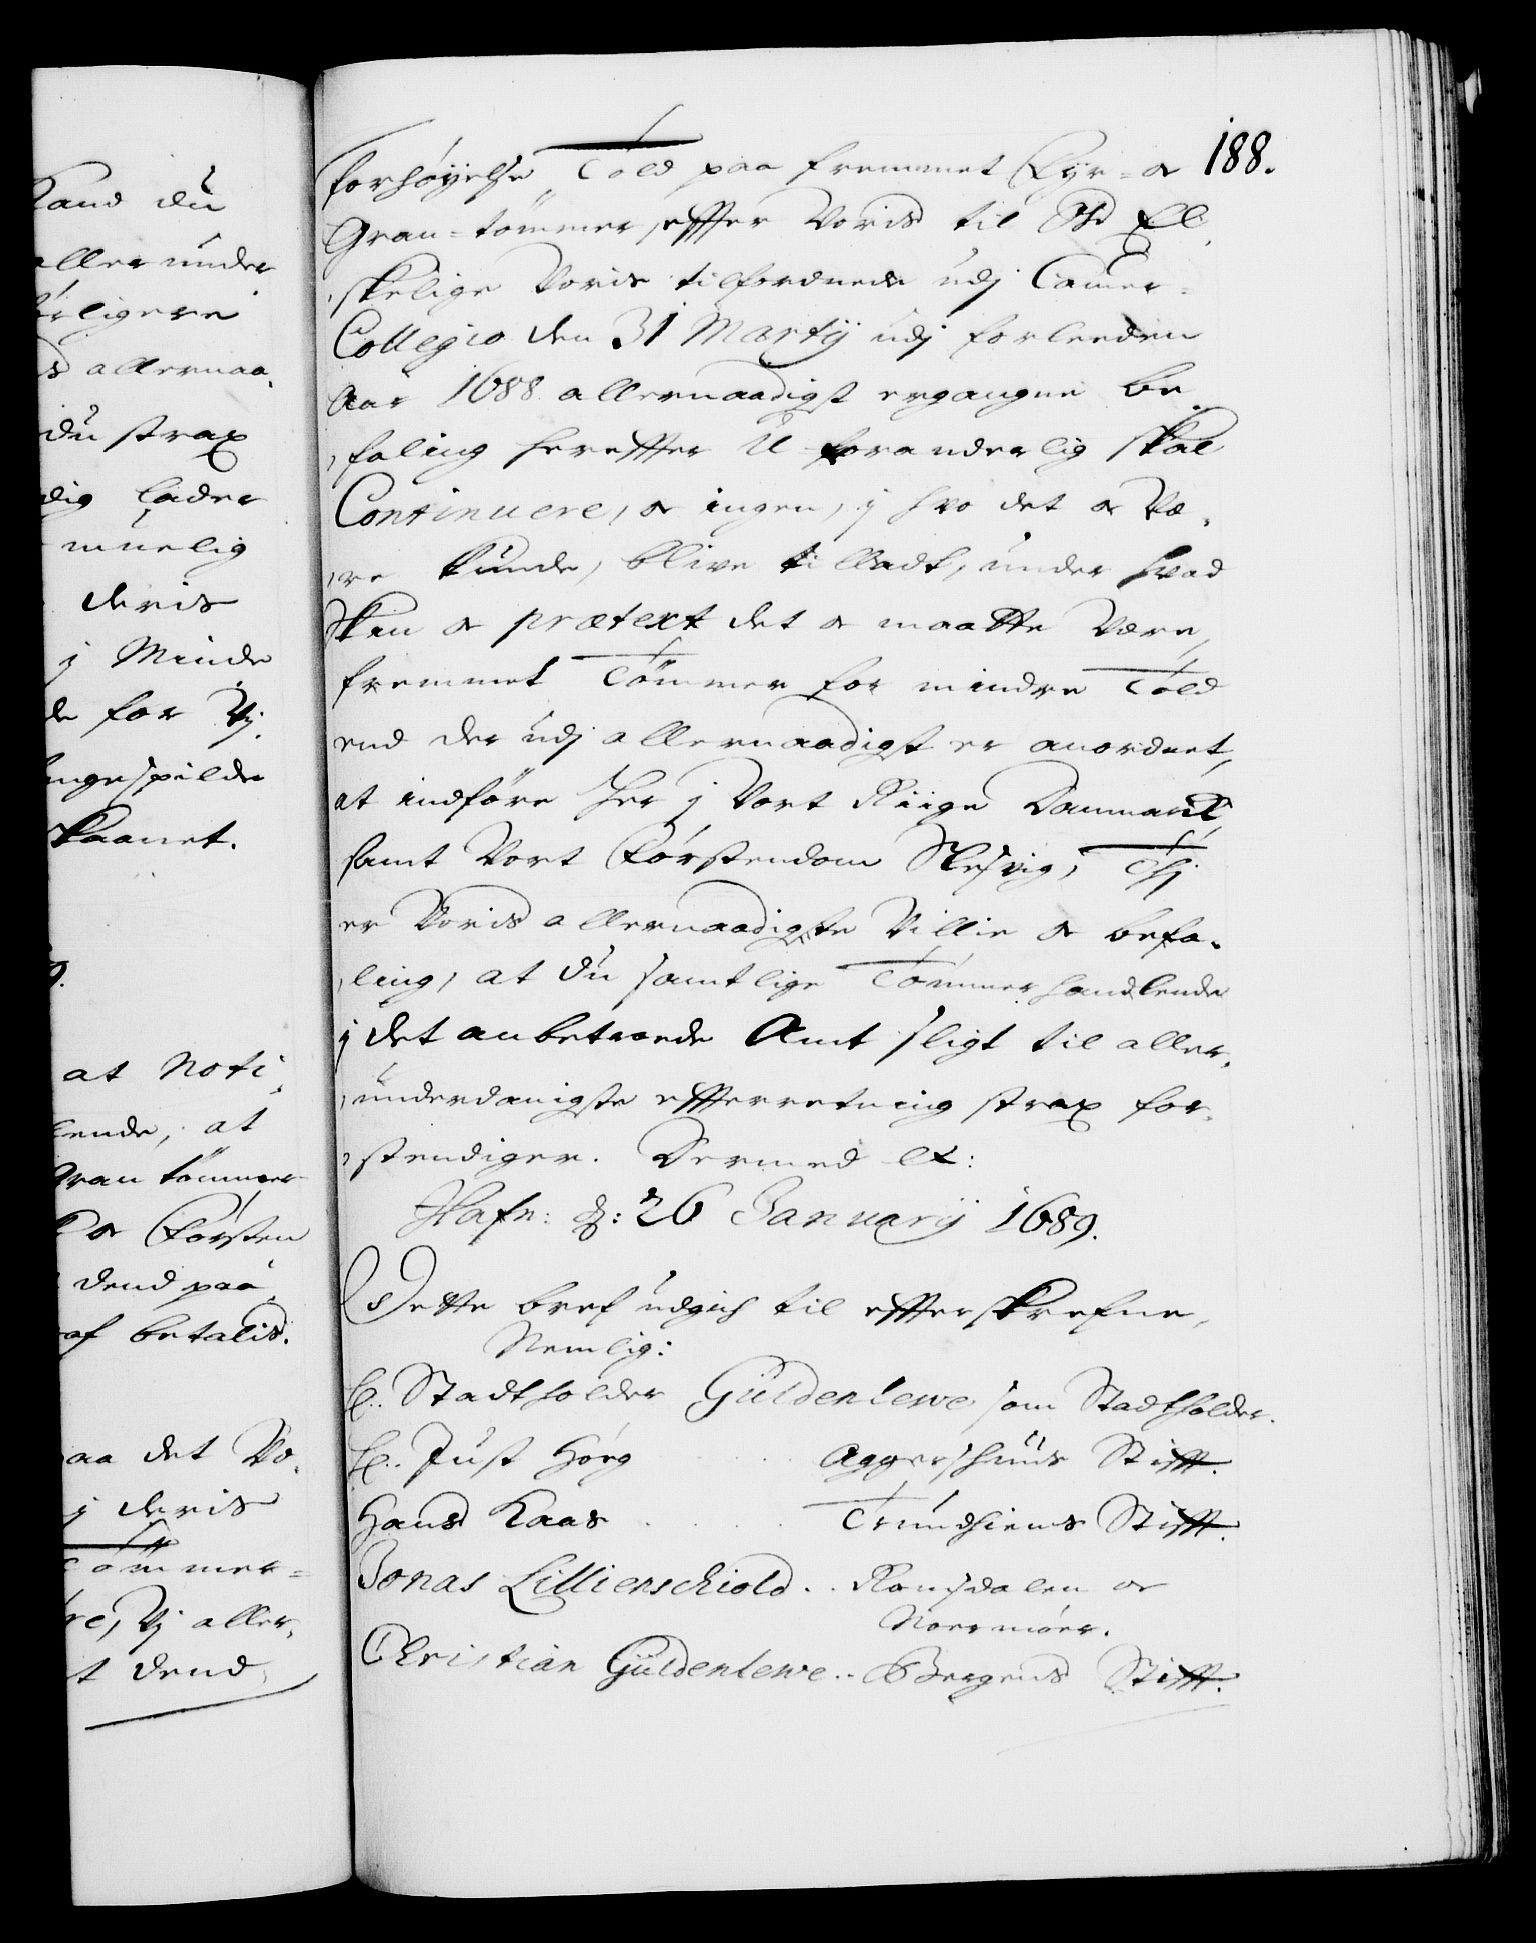 Kand du
allerunder
ligere
s allernaa,
du strax
dig lader
muelig
deris
j Minde
de for Vj
ngespilde
skaanet.
at Noti,
lende, at
Gran tömmer
K og Försten
dend paa,
af betalis.
paa det Vo,
j deris
Tömmer=
re, Vj aller,
t dend
188.
forhöyelse Told paa fremmet Fyr= og
Gran=tömmer, effter Voris til Os El,
,skelige Voris tilforordnede udj Camer=
Collegio den 31 Martij udj forleeden
Aar 1688 allernaadigst ergangne be,
,faling hereffter U-foranderlig skal
Continuere, og ingen, j hvo det og Væ,
,re kunde, blive tilladt, under hvad
Skin og prætext det og maatte Være,
fremmet Tömmer for mindre Told
end der udj allernaadigst er anordnet,
at indföre her j Vort Riige Danmark
samt Vort Förstendom Slesvig, Thj
er Voris allernaadigste Villie og befa,
,ling, at du samtlige Tömmer handlende
j det anbetroede Amt sligt til aller,
,underdanigste effterretning strax for,
,stendiger. Dermed etc:
Hafn: d: 26 Januarij 1689.
Dette bref udgich til effterskrefne,
Nemlig:
H. Stadtholder Güldenlewe som Stadtholder.
H. Just Hög . . Aggershuus Stifft.
Hans Kaas . . . Trundhiems Stifft.
Jonas Lillienschiold . . Romsdalen og
Noermöer.
Christian Güldenlewe . . Bergens Stifft.